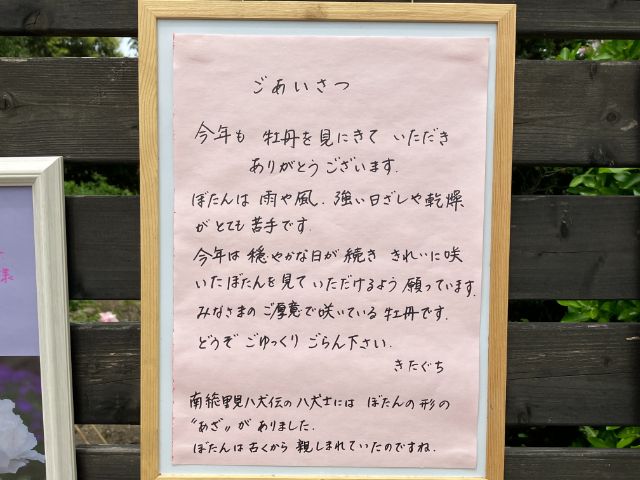 ごあいさつ
今年も 牡丹を見にきて いただき
ありがとうございます.
ぼたんは 雨や風. 強い日ざしや乾燥
がとても苦手です.
今年は 穏やかな日が 続き きれいに咲
いたぼたんを見て いただけるよう 願っています.
みなさまの ご厚意で咲いている 牡丹です.
どうぞ ごゆっくり ごらん下さい.
きたぐち
南総里見八犬伝の 八犬士には ぼたんの 形の
"あざ" が ありました.
ぼたんは 古くから 親しまれていたのですね.
様